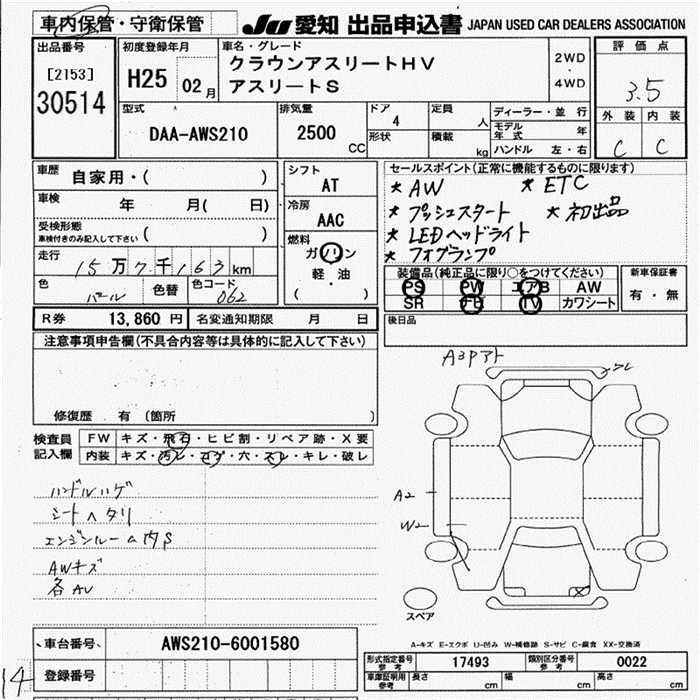 車内保管・守衛保管
JU 愛知 出品申込書 JAPAN USED CAR DEALERS ASSOCIATION
出品番号
[2153]
30514
初度登録年月
H25 02月
車名・グレード
クラウンアスリートHV
アスリートS
2WD
・
4WD
評価点
3.5
外装 内装
C C
型式
DAA-AWS210
排気量
2500 CC
ドア
4
形状
定員
人
積載
kg
ディーラー・並行
モデル年式 年
ハンドル 左・右
車歴
自家用・( )
車検
年 月( 日)
受検形態
車検付きのみ記入して下さい ( )
走行
15万7千163km
色
パール
色替
色コード
062
シフト
AT
冷房
AAC
燃料
ガソリン
軽・油
( )
セールスポイント(正常に機能するものに限ります)
★ AW ★ ETC
★ プッシュスタート ★ 初出品
★ LEDヘッドライト
★ フォグランプ
装備品(純正品に限り○をつけてください)
PS PW エアB AW
SR TV カワシート
新車保証書
有・無
後日品
R券 13,860 円
名変通知期限 月 日
注意事項申告欄(不具合内容等は具体的に記入して下さい)
修復歴 有 (箇所 )
検査員記入欄
FW キズ・飛石・ヒビ割・リペア跡・X要
内装 キズ・汚レ・コゲ・穴・スレ・キレ・破レ
ハンドルハゲ
シートヘタリ
エンジンルーム内S
AWキズ
各AU
A2
W2
X
スペア
A-キズ E-エクボ U-凹み W-補修跡 S-サビ C-腐食 XX-交換済
車台番号 AWS210-6001580
登録番号
14
形式指定番号 参考 17493
類別区分番号 参考 0022
車庫証明用 参考
長さ cm
幅 cm
高さ cm